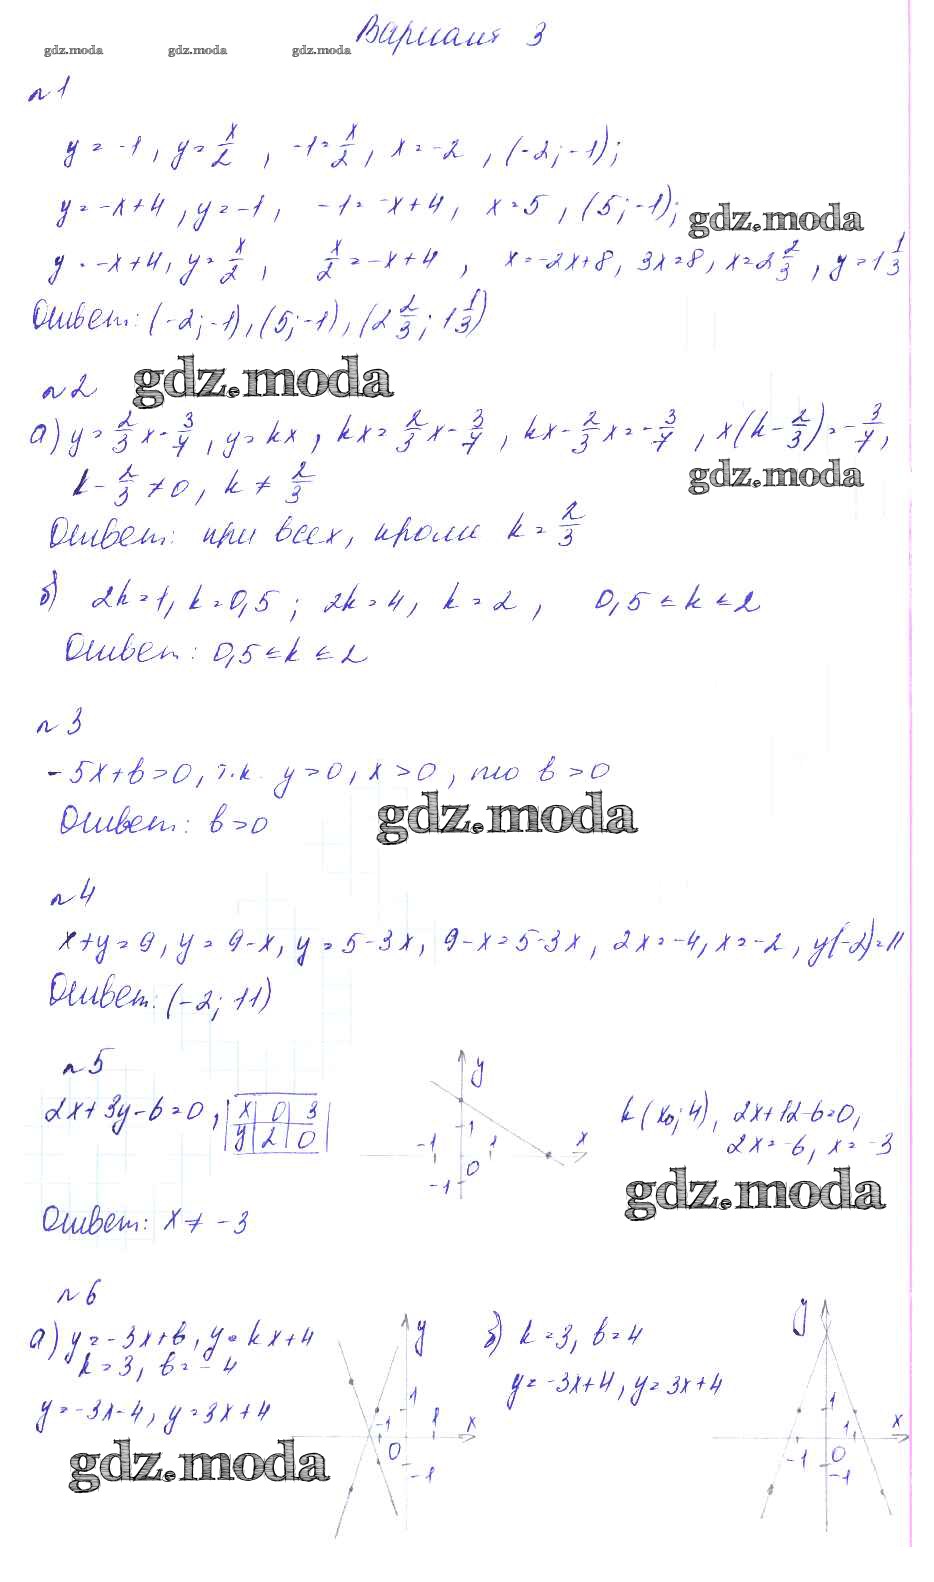 Вариант 3
gdz.moda gdz.moda gdz.moda
№1
y = -1, y = x/2, -1 = x/2, x = -2, (-2; -1);
y = -x+4, y = -1, -1 = -x+4, x = 5, (5; -1);
gdz.moda
y = -x+4, y = x/2, x/2 = -x+4, x = -2x+8, 3x = 8, x = 2 2/3, y = 1 1/3
Ответ: (-2; -1), (5; -1), (2 2/3; 1 1/3)
№2
gdz.moda
а) y = 2/3 x - 3/7, y = kx, kx = 2/3 x - 3/7, kx - 2/3 x = -3/7, x(k - 2/3) = -3/7,
k - 2/3 ≠ 0, k ≠ 2/3
gdz.moda
Ответ: при всех, кроме k = 2/3
б) 2k = 1, k = 0,5; 2k = 4, k = 2, 0,5 ≤ k ≤ 2
Ответ: 0,5 ≤ k ≤ 2
№3
-5x+b>0, т.к. y>0, x>0, то b>0
Ответ: b>0
gdz.moda
№4
x+y=9, y=9-x, y=5-3x, 9-x=5-3x, 2x=-4, x=-2, y(-2)=11
Ответ: (-2; 11)
№5
2x+3y-6=0,
x 0 3
y 2 0
y
x
-1
1
1
0
-1
k(x₀; 4), 2x+12-6=0,
2x=-6, x=-3
gdz.moda
Ответ: x ≠ -3
№6
а) y=-3x+b, y=kx+4
k=3, b=-4
y=-3x-4, y=3x+4
y
x
1
-1
1
0
-1
gdz.moda
б) k=3, b=4
y=-3x+4, y=3x+4
y
x
1
-1
1
0
-1